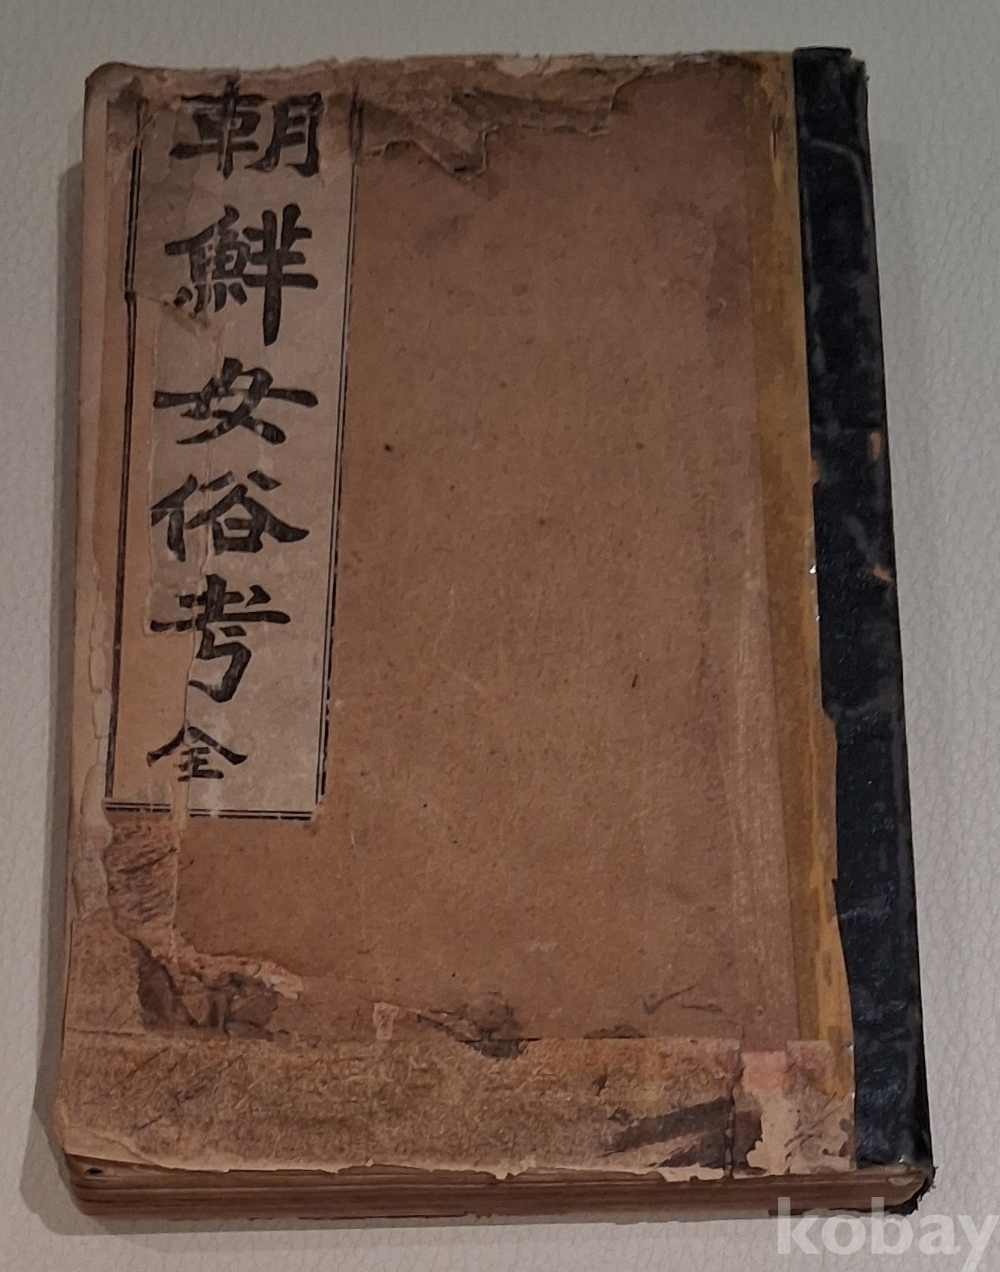 朝鮮女俗考 全
kobay